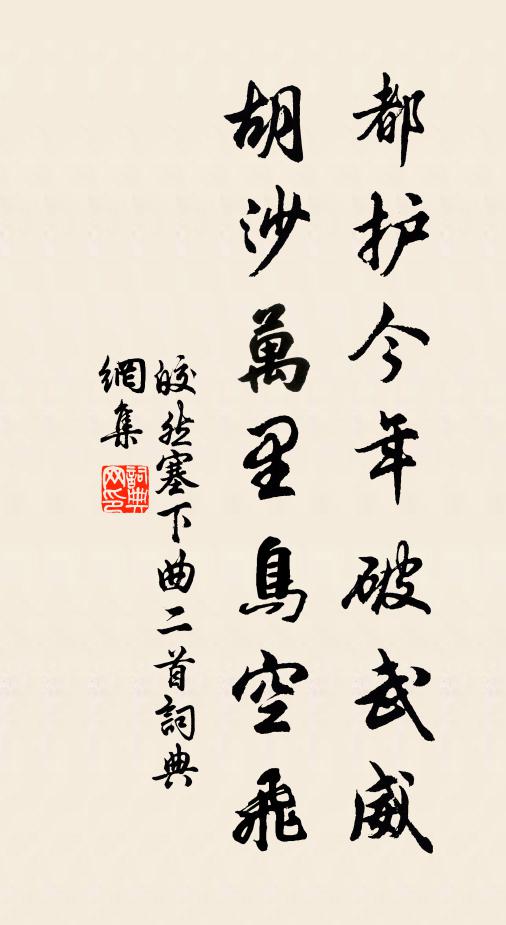 都护今年破武威
胡沙萬里鳥空飛
皎然塞下曲二首詞典
網集
詞典
网印